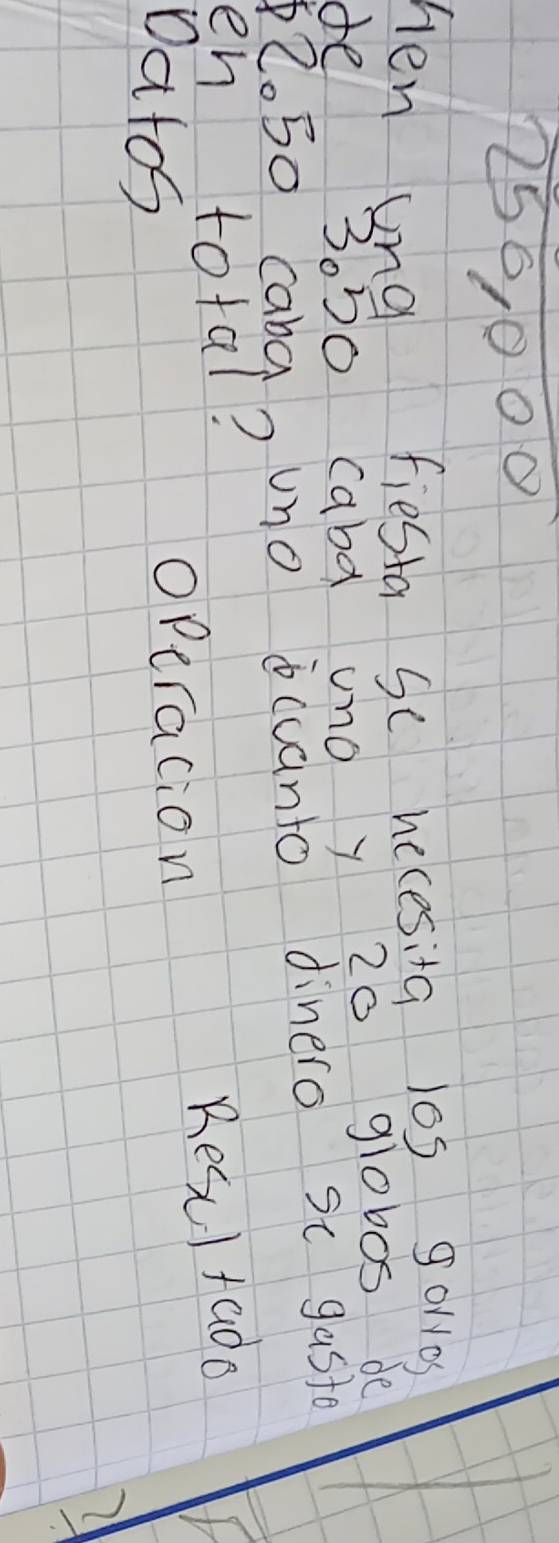 256,000
4en una fiesta se necesita 105 gorros
de 3.50 caba uno y 20 globos de
$2.50 caba? uno ¿cuanto dinero se gasto
en total?
Datos Operacion Resultado